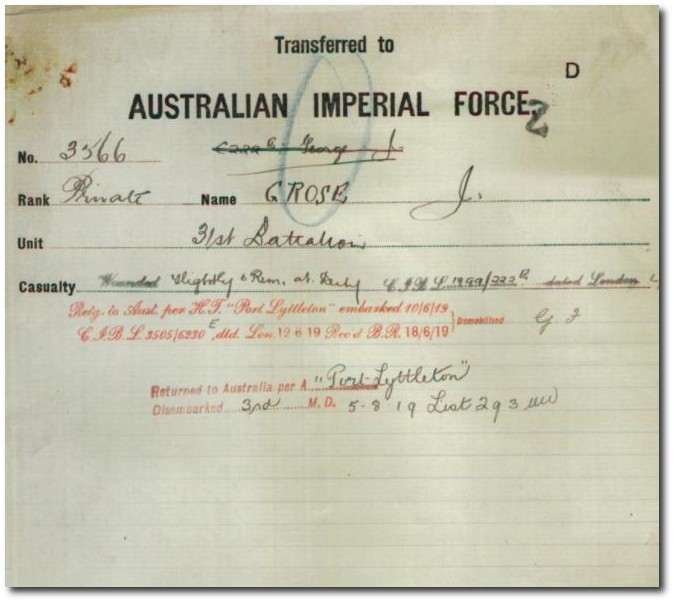 Transferred to
D
AUSTRALIAN IMPERIAL FORCE.
2
No. 3566 George J.
Rank Private Name GROSE J.
Unit 31st Battalion
Casualty Wounded Slightly & Rem. at Duty C.I.B.L. 1999/222 B dated London
Retg. to Aust. per H.T. "Port Lyttleton" embarked 10/6/19
C.I.B.L. 3505/6230 E, dtd. Lon. 12 6 19 Rec'd B.R. 18/6/19 Demobilised
Returned to Australia per A "Port Lyttleton"
Disembarked 3rd M.D. 5-8-19 List 293